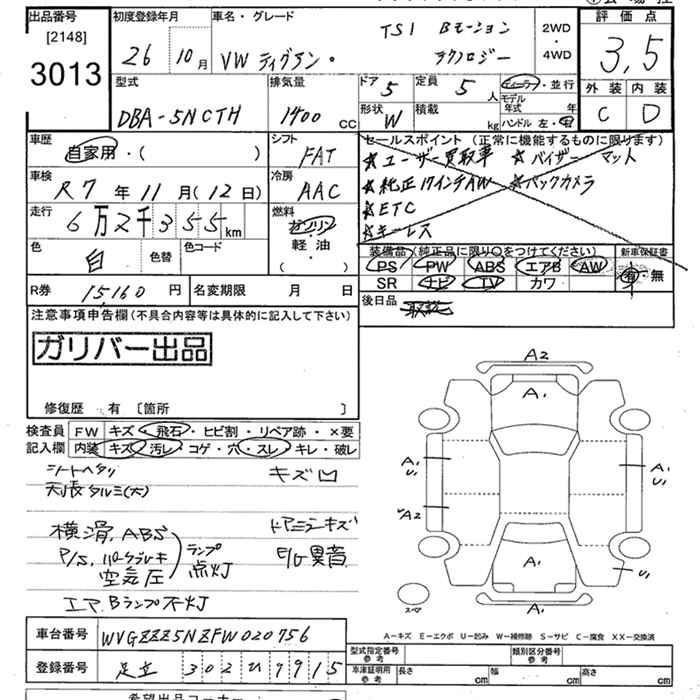 出品番号
[2148]
3013
初度登録年月
26 10月
車名・グレード
VW ティグアン・ TSI Bモーション
テクノロジー
2WD
・
4WD
評価点
3,5
外装 内装
C D
型式
DBA-5NCTH
排気量
1400 cc
ドア 5
定員 5人
ディーラー・並行
モデル
年式 年
形状 W
積載 kg
ハンドル 左・右
車歴
自家用・( )
シフト
FAT
セールスポイント (正常に機能するものに限ります)
☆ユーザー買取車 ☆バイザー マット
☆純正17インチAW ☆バックカメラ
☆ETC
☆キーレス
車検
R7年11月(12日)
冷房
AAC
走行
6万2千355km
燃料
ガソリン
軽・油
( )
色
白
色替
色コード
装備品 (純正品に限り○をつけてください)
PS PW ABS エアB AW
SR ナビ TV カワ
新車保証書
有・無
R券 15160円
名変期限 月 日
後日品
注意事項申告欄(不具合内容等は具体的に記入して下さい)
ガリバー出品
修復歴 有 〔箇所 〕
検査員
記入欄
FW キズ・飛石・ヒビ割・リペア跡・×要
内装 キズ・汚レ・コゲ・穴・スレ・キレ・破レ
シートヘタリ キズ凹
天張タルミ(大)
横滑,ABS ドアミラーキズ
P/S,パークブレーキ ランプ E/G異音
空気圧 点灯
エアBランプ不灯
A2
A1
A1
U1
A1
U1
A2
A1
U1
A1
スペア
A-キズ E-エクボ U-凹み W-補修跡 S-サビ C-腐食 XX-交換済
車台番号 WVGZZZ5NZFW020756
型式指定番号
参考
類別区分番号
参考
登録番号 足立 302 ひ 7915
車庫証明用
参考
長さ cm 幅 cm 高さ cm
希望出品コーナー